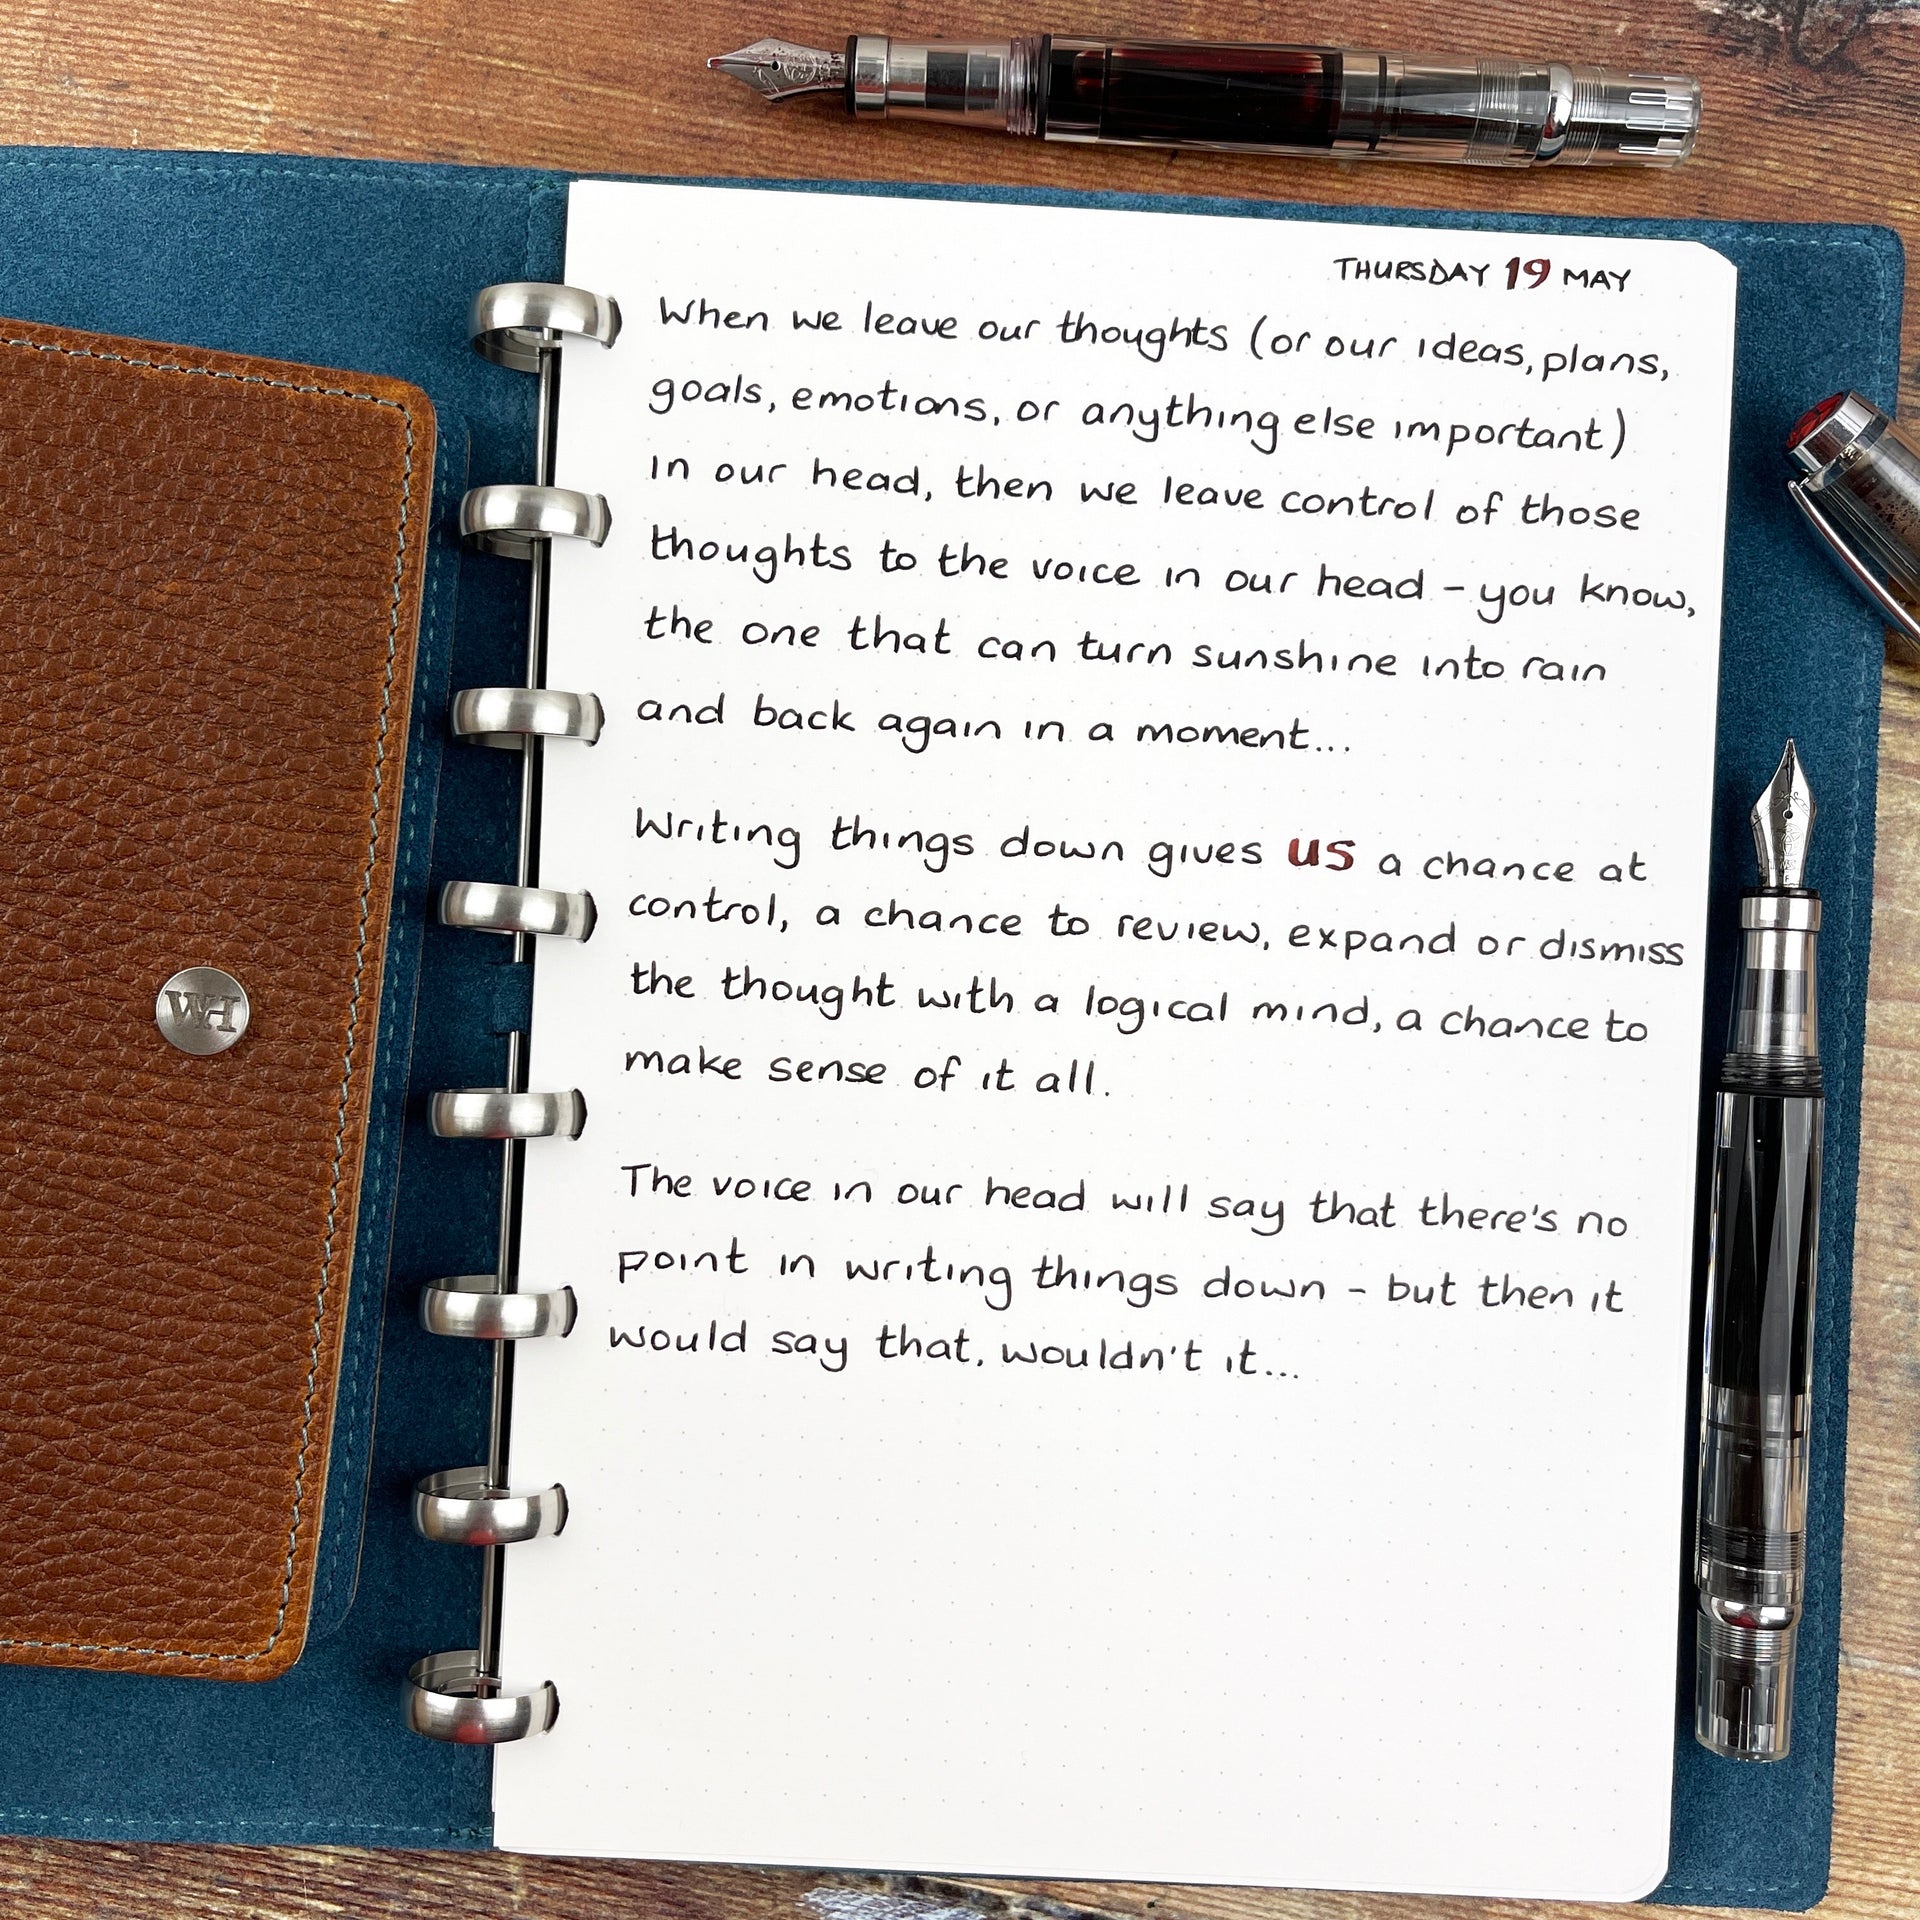 THURSDAY 19 MAY
When we leave our thoughts (or our ideas, plans,
goals, emotions, or anything else important)
in our head, then we leave control of those
thoughts to the voice in our head - you know,
the one that can turn sunshine into rain
and back again in a moment...
Writing things down gives us a chance at
control, a chance to review, expand or dismiss
the thought with a logical mind, a chance to
make sense of it all.
The voice in our head will say that there's no
point in writing things down - but then it
would say that, wouldn't it...
WH